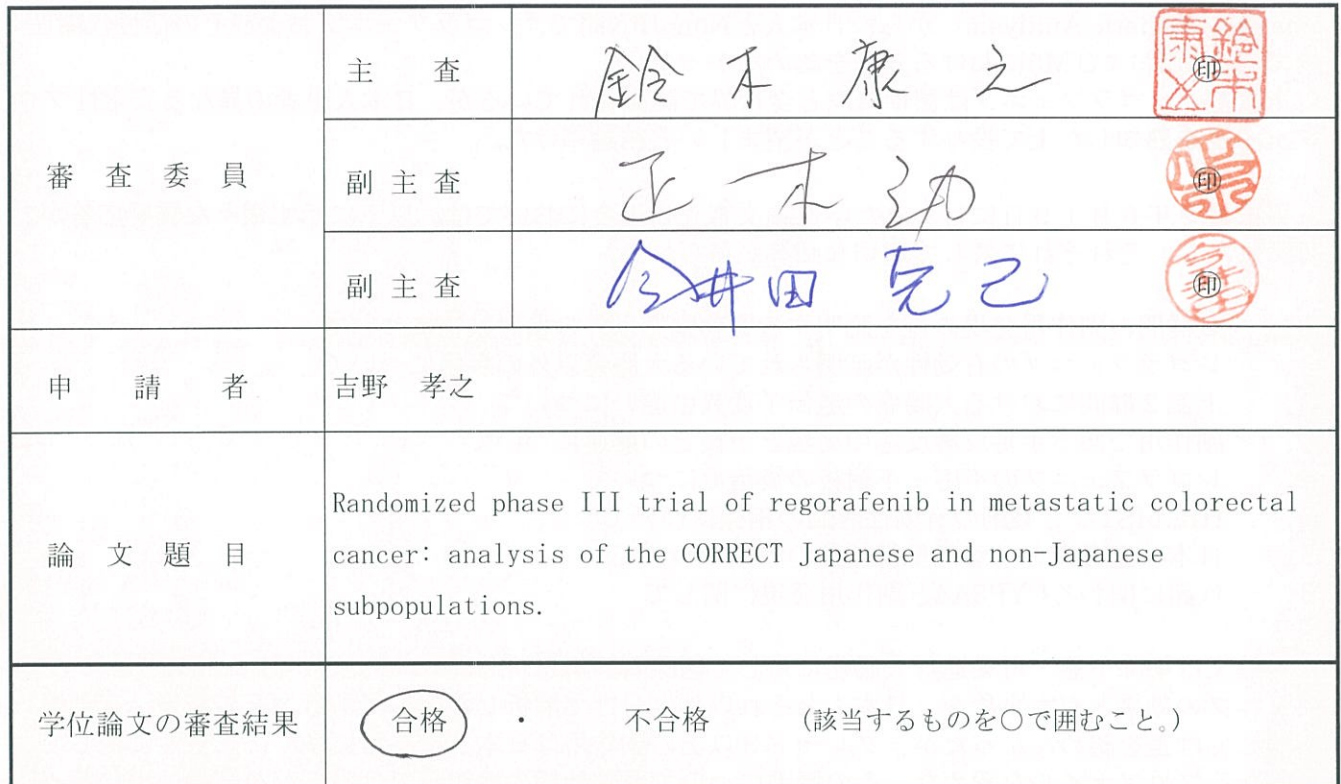 主 査 鈴木 康之 印
審 査 委 員
副 主 査 正木 勉 印
副 主 査 今井田 克己 印
申 請 者 吉野 孝之
論 文 題 目
Randomized phase III trial of regorafenib in metastatic colorectal
cancer: analysis of the CORRECT Japanese and non-Japanese
subpopulations.
学位論文の審査結果 合格 ・ 不合格 (該当するものを○で囲むこと。)